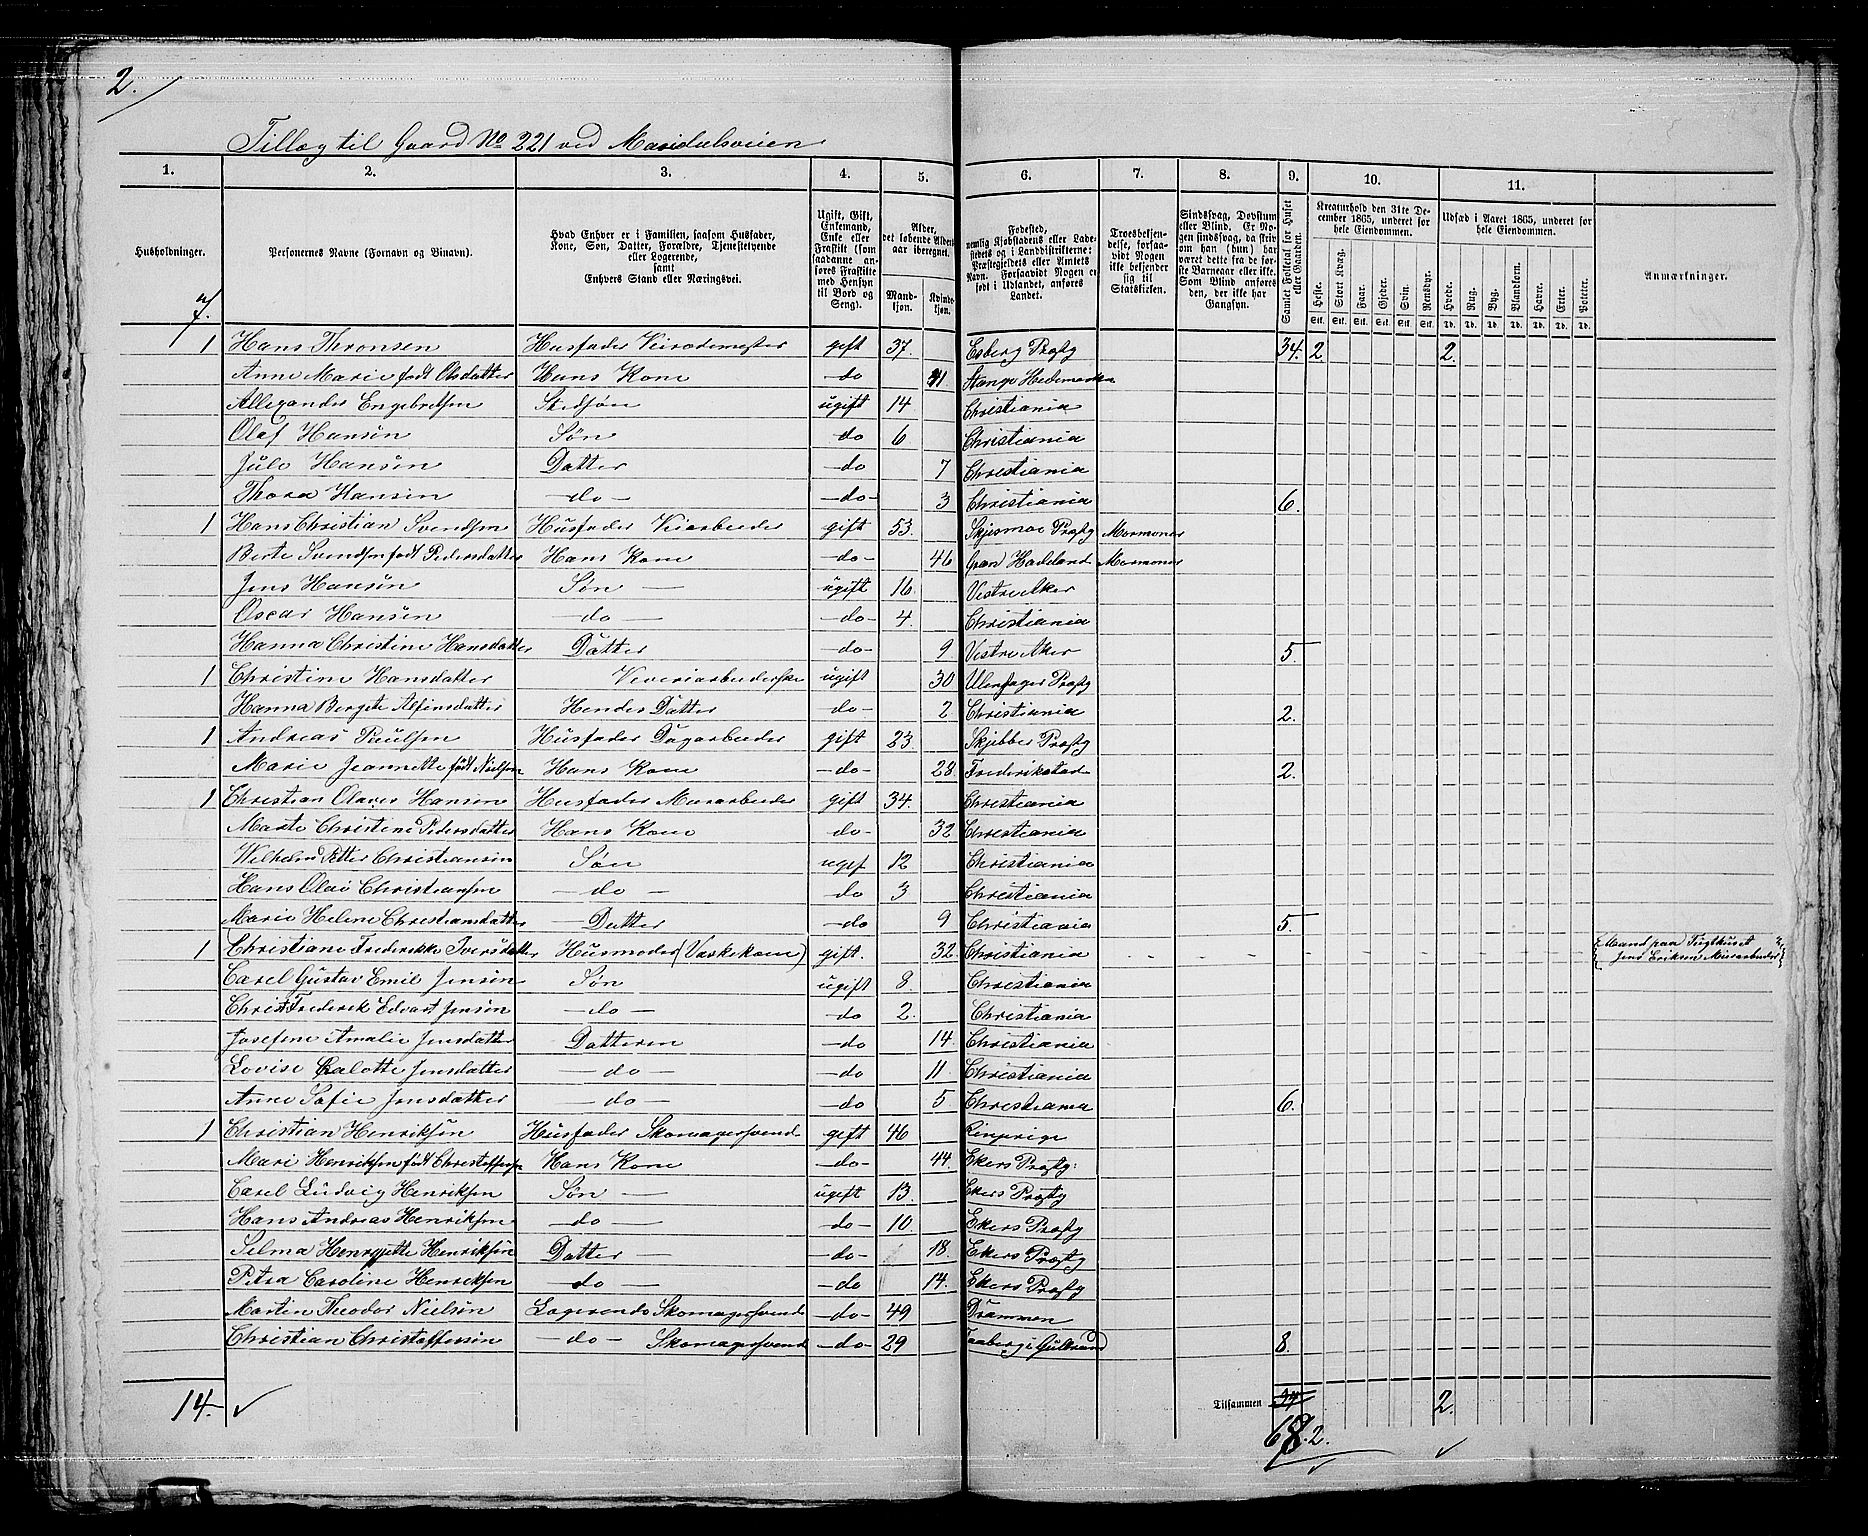 2.
Tillæg til Gaard No 221 ved Maridalsveien
1. 2. 3. 4. 5. 6. 7. 8. 9. 10. 11.
Husholdninger.
Personernes Navne (Fornavn og Binavn).
Hvad Enhver er i Familien, saasom Husfader, Kone, Søn, Datter, Forældre, Tjenestetyende eller Logerende, samt Enhvers Stand eller Næringsvei.
Ugift, Gift, Enkemand, Enke eller Fraskilt (som saadanne anføres Fraskilte med Hensyn til Bord og Seng).
Alder, det løbende Alders aar iberegnet.
Mandkjøn. Kvindekjøn.
Fødested, nemlig Kjøbstadens eller Ladestedets og i Landdistrikterne: Præstegjeldets eller Amtets Navn. Forsaavidt Nogen er født i Udlandet, anføres Landet.
Troesbekjendelse, forsaavidt Nogen ikke bekjender sig til Statskirken.
Sindssvag, Døvstum eller Blind. Er Nogen sindssvag, da skriv om han (hun) har været dette fra de første Barneaar eller ikke. Som Blind anføres den, der ikke har Gangsyn.
Samlet Folketal for Huset eller Gaarden.
Kreaturhold den 31te December 1865, underet for hele Eiendommen.
Heste. Stort Kvæg. Faar. Gjeder. Svin. Rensdyr.
Stk. Stk. Stk. Stk. Stk. Stk.
Udsæd i Aaret 1865, underet for hele Eiendommen.
Hvede. Rug. Byg. Blankorn. Havre. Erter. Poteter.
Td. Td. Td. Td. Td. Td. Td.
Anmærkninger.
7.
1 Hans Thronsen Husfader Veirodemester gift 37. Esberg Præstg 34. 2 2.
Anne Marie født Olsdatter Hans Kone do 41 Stange Hedemarken
Allexander Engebretsen Stedsøn ugift 14 Christiania
Olaf Hansen Søn do 6 Christiania
Jule Hansen Datter do 7 Christiania
Thora Hansen do do 3 Christiania 6.
1 Hans Christian Svendsen Husfader Veiarbeider gift 53. Skjesmoe Præstg Mormoner
Birte Svendsen født Pedersdatter Hans Kone do 46 Gran Hadeland Mormoner
Jens Hansen Søn ugift 16. Vestre Aker
Oscar Hansen do do 4 Christiania
Hanna Christine Hansdatter Datter do 9 Vestre Aker 5.
1 Christine Hansdatter Veveriarbeiderske ugift 30 Ulensager Præstg
Hanna Bergete Alfinsdatter Hendes Datter do 2 Christiania 2.
1 Andreas Paulsen Husfader Dagarbeider gift 23. Skjebber Præstg
Marie Jeannette født Nielsen Hans Kone do 28. Frederikstad 2.
1 Christian Olaves Hansen Husfader Murarbeider gift 34. Christiania
Marte Christine Pedersdatter Hans Kone do 32 Christiania
Wilhelm Petter Christiansen Søn ugif 12 Christiania
Hans Olai Christiansen do do 3 Christiania
Marie Helene Christiansdatter Datter do 9 Christiania 5.
1 Christiane Frederikke Iversdatter Husmoder (Vaskekone) gift. 32. Christiania Mand paa Tugthuset
Jens Eriksen Murarbeider
Carel Gustav Emil Jensen Søn ugift 8. Christiania
Christ Frederik Edvart Jensen do do 2. Christiania
Josefine Amalie Jensdatter Datteren do 14. Christiania
Lovise Calotte Jensdatter do do 11 Christiania
Anne Sofie Jensdatter do do 5. Christiania 6.
1 Christian Henriksen Husfader Skomagersvend gift 46 Ringerige
Mari Henriksen født Christoffersen Hans Kone do 44. Ekers Præstg:
Carel Ludvig Henriksen Søn ugift 13. Ekers Præstg
Hans Andreas Henriksen do do 10. Ekers Præstg
Selma Henrgjette Henriksen Datter do 18. Ekers Præstg
Petra Caroline Henriksen do do 14. Ekers Præstg
Martin Theodor Nielsen Logerende Skomagersvend do 49 Drammen
Christian Christoffersen do Skomagersvend do 29 Faaberg i Gulbrand 8.
14. Tilsammen 34 2.
68. 2.